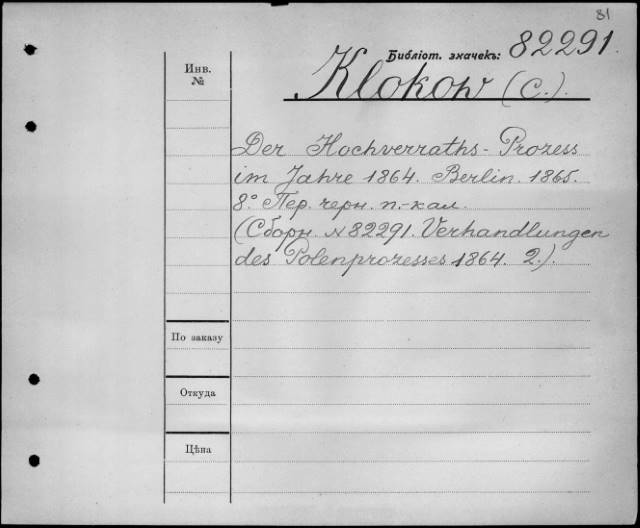 81
Библіот. значекъ: 82291.
Инв.
№
Klokow (C.).
Der Hochverraths-Prozess
im Jahre 1864. Berlin. 1865.
8° Пер. черн. п.-кал.
(Сборн. № 82291. Verhandlungen
des Polenprozesses 1864. 2.).
По заказу
Откуда
Цѣна